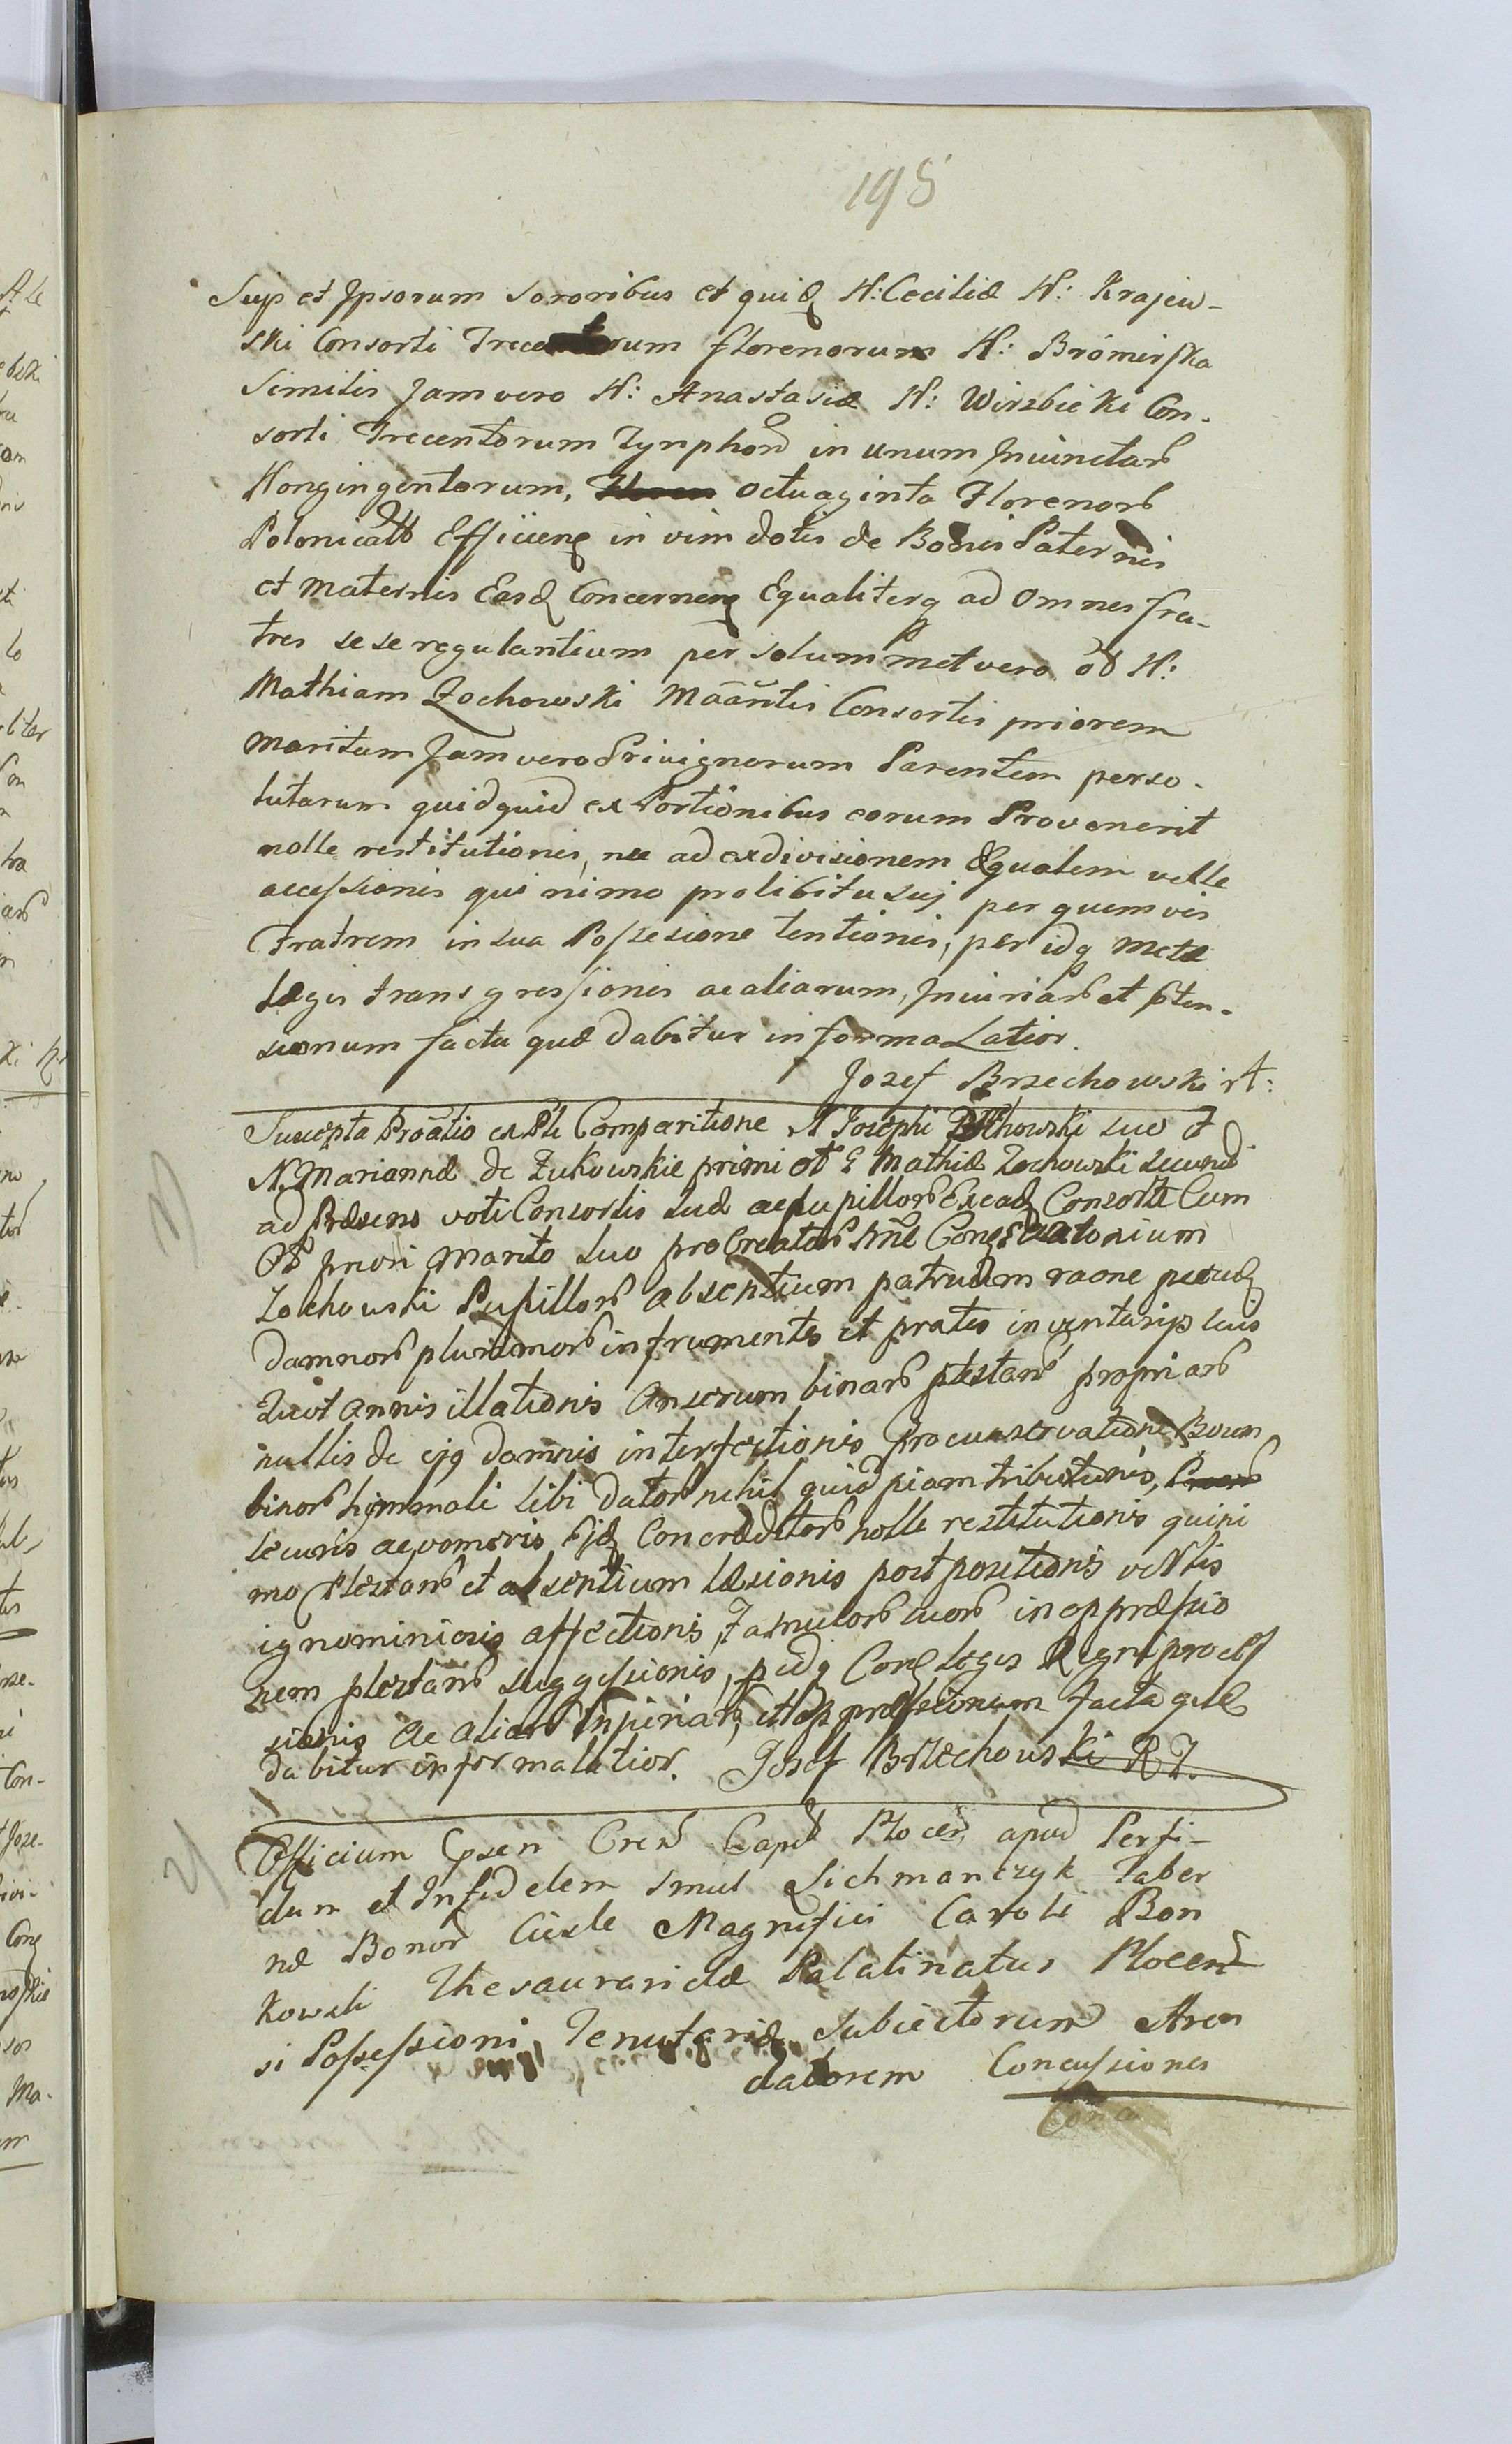 195
Suis et Ipsorum sororibus et quidq N: Ceciliæ N: Krajew-
ski Consorti Trecentorum florenorum N: Bromirska
Similis Jam vero N: Anastasiæ N: Wirzbicki Con-
sorti Trecentorum Tynphor in unum Iniunctar
Nongingentorum, octuaginta Florenor
Polonical Efficieng in vim dotis de Bonis Paternis
et Maternis Easq Concerneng Equaliterq ad Omnes fra-
tres sese regulantium per solummet vero ol N:
Mathiam Zochowski Maãntis Consortis priorem
Maritum Jam vero Privignorum Parentem perso-
lutarum quidquid ex Portionibus eorum Provenerit
nolle restitutionis, nec ad exdivisionem Equalem velle
accessionis qui nimo prolibitu suj per quemvis
Fratrem in sua Possesione tentionis, per idq metæ
Legis transgressionis ac aliarum, Iniuriar et pten-
sionum facta quæ dabitur in forma Latior.
Jozef Brzechowski rt:
Suscepta Proãlio ex Pti Comparitione N Josephi Brzechowski suo et
N. Mariannæ de Zukowskie primi ol G Mathiæ Zochowski secundi
ad Præsens voti Consortis suæ ac pupillor Exeadq Consorte Cum
Ol priori Marito suo proCreator
Zochowski Pupillor absentium patruum raone
damnor plurimor in frumentis et pratis in
quot annis illationis Anserum binar ptestan propriar
nullis de ejq damnis interfectionis Pro cunservatione Boum
binor hyemmali sibi dator nihil quidpiam tributionis,
securis ac vomeris Ejq Concreditor nolle restitutionis quini
mo Ptestan et absentium læsionis postpositionis
ignominiosis affectionis, Famulor suor in oppressio
nem ptestan suggestionis, pidq Conq Legis Regni
sionis ac aliar Injuriar, et oppressionum facta quæ
dabitur in forma Latior. Josef Brzechowski R T.
Officium Cpsen Cren Capt Plocen apud Perfi-
dum et Infidelem Smul Lichmanczyk Taber
næ Bonor Ciesle Magnifici Caroli Bon
kowski Thesauraridæ Palatinatus Plocen
si Possessioni, Tenutariæ Subiectorum Aren
datorem Concussiones